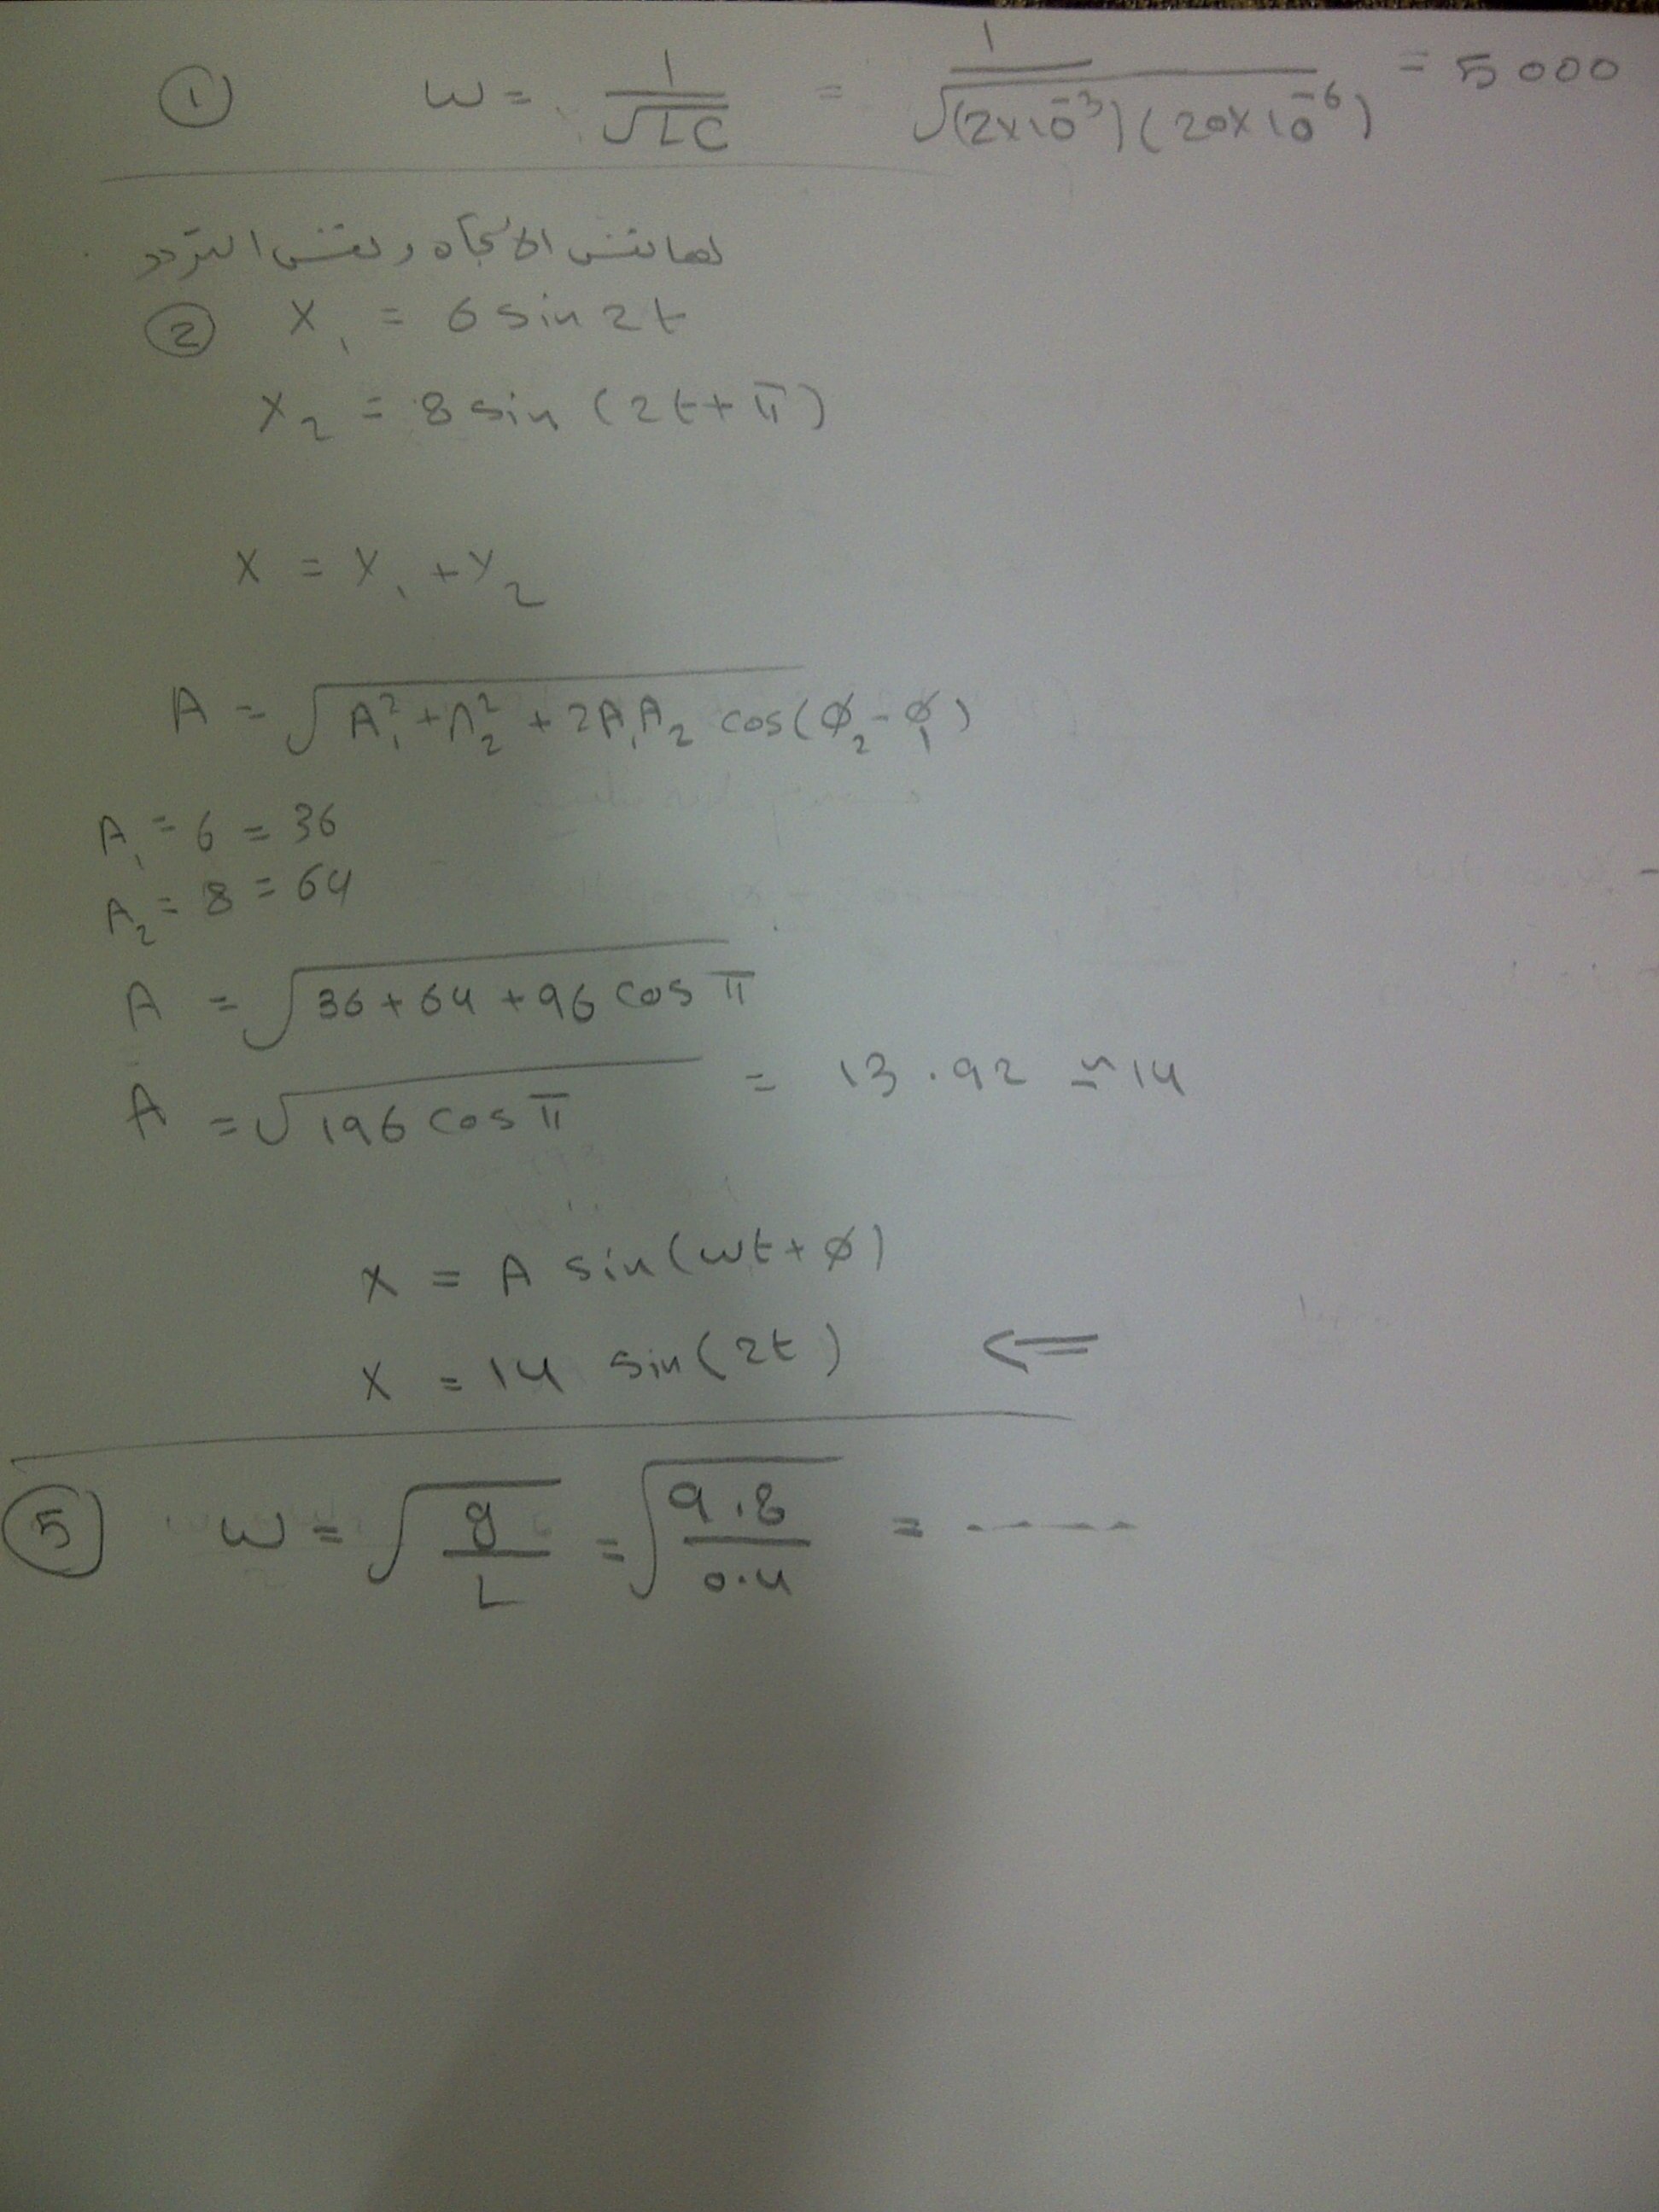 ① ω = 1/√LC = 1/√(2×10⁻³)(20×10⁻⁶) = 5000
لهما نفس الاتجاه ونفس التردد
② x₁ = 6 sin 2t
x₂ = 8 sin (2t + π)
x = x₁ + x₂
A = √A₁² + A₂² + 2A₁A₂ cos(ø₂ - ø₁)
A₁ = 6 = 36
A₂ = 8 = 64
A = √36 + 64 + 96 cos π
A = √196 cos π = 13.92 ≃ 14
x = A sin(ωt + ø)
x = 14 sin(2t) ⇐
⑤ ω = √g/L = √9.8/0.4 = -----